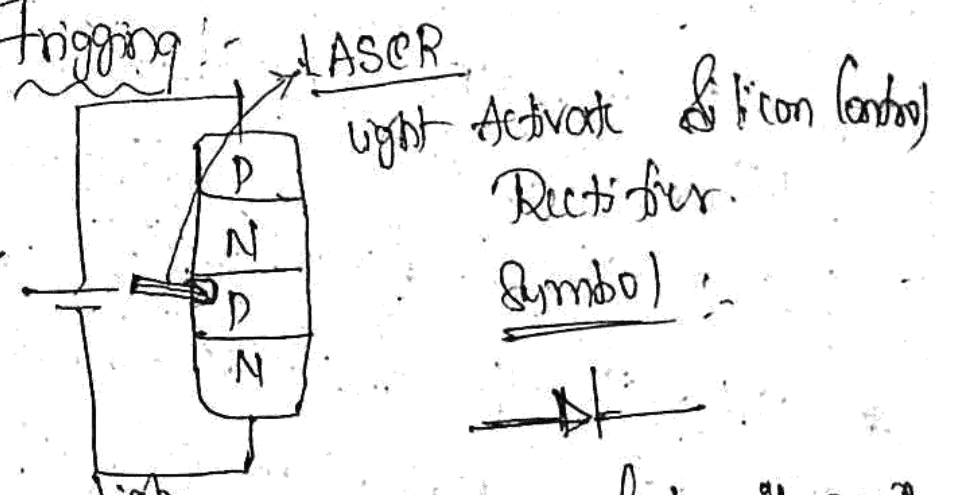 Trigging :-
LASCR
Light Activate Silicon Control
Rectifier.
P
N
P
N
Symbol :-